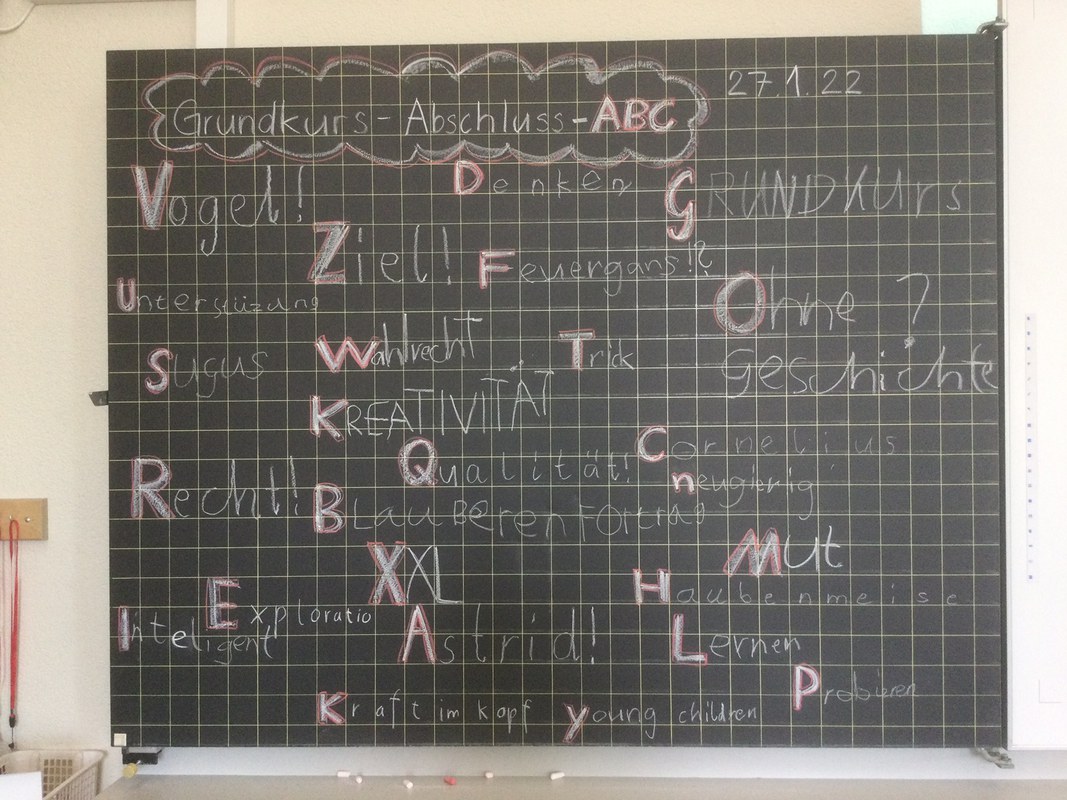 27.1.22
Grundkurs-Abschluss-ABC
Vogel!
Denken
GRUNDKUrs
Ziel!
Feuergans!?
Unterstüzung
Ohne ?
geschichte
Sugus
Wahlrecht
Trick
KREATIVITÄT
Qualität!
Cornelius
neugierig
Recht!
BLauBeerenFortrag
XXL
Mut
Haubenmeise
Exploratio
Inteligent
Astrid!
Lernen
Probieren
Kraft im kopf
young children